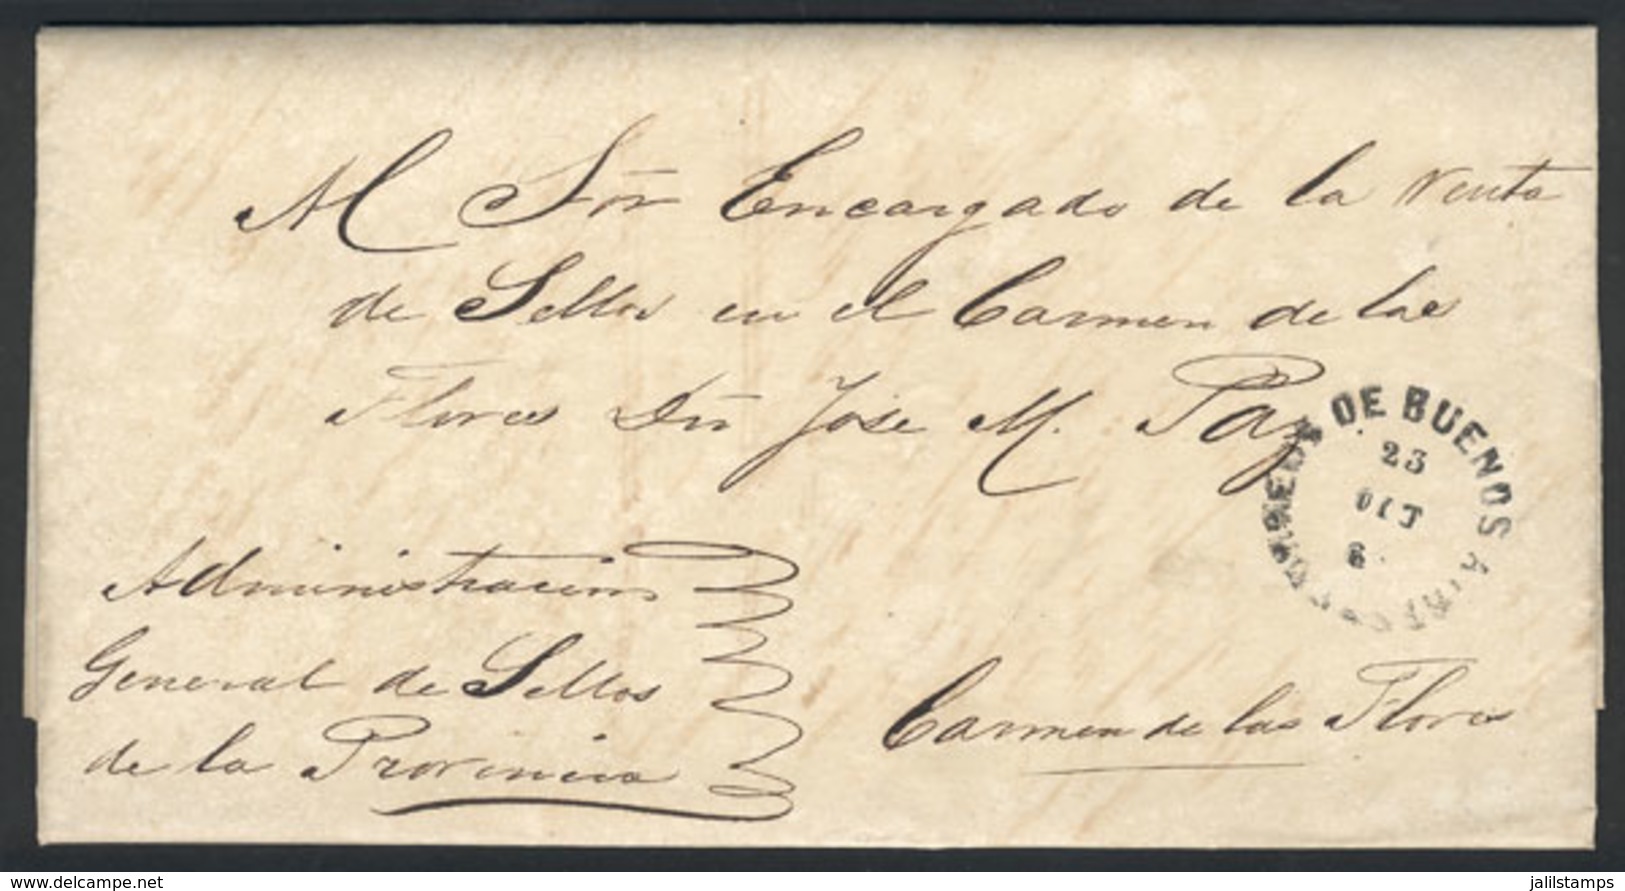 Al Sor Encargado de la Venta
de Sellos en el Carmen de las
Flores Dn Jose M. Paz
DE BUENOS
23
OCT
6
Administracion
General de Sellos
de la Provincia
Carmen de las Flores
www.delcampe.net
jalilstamps